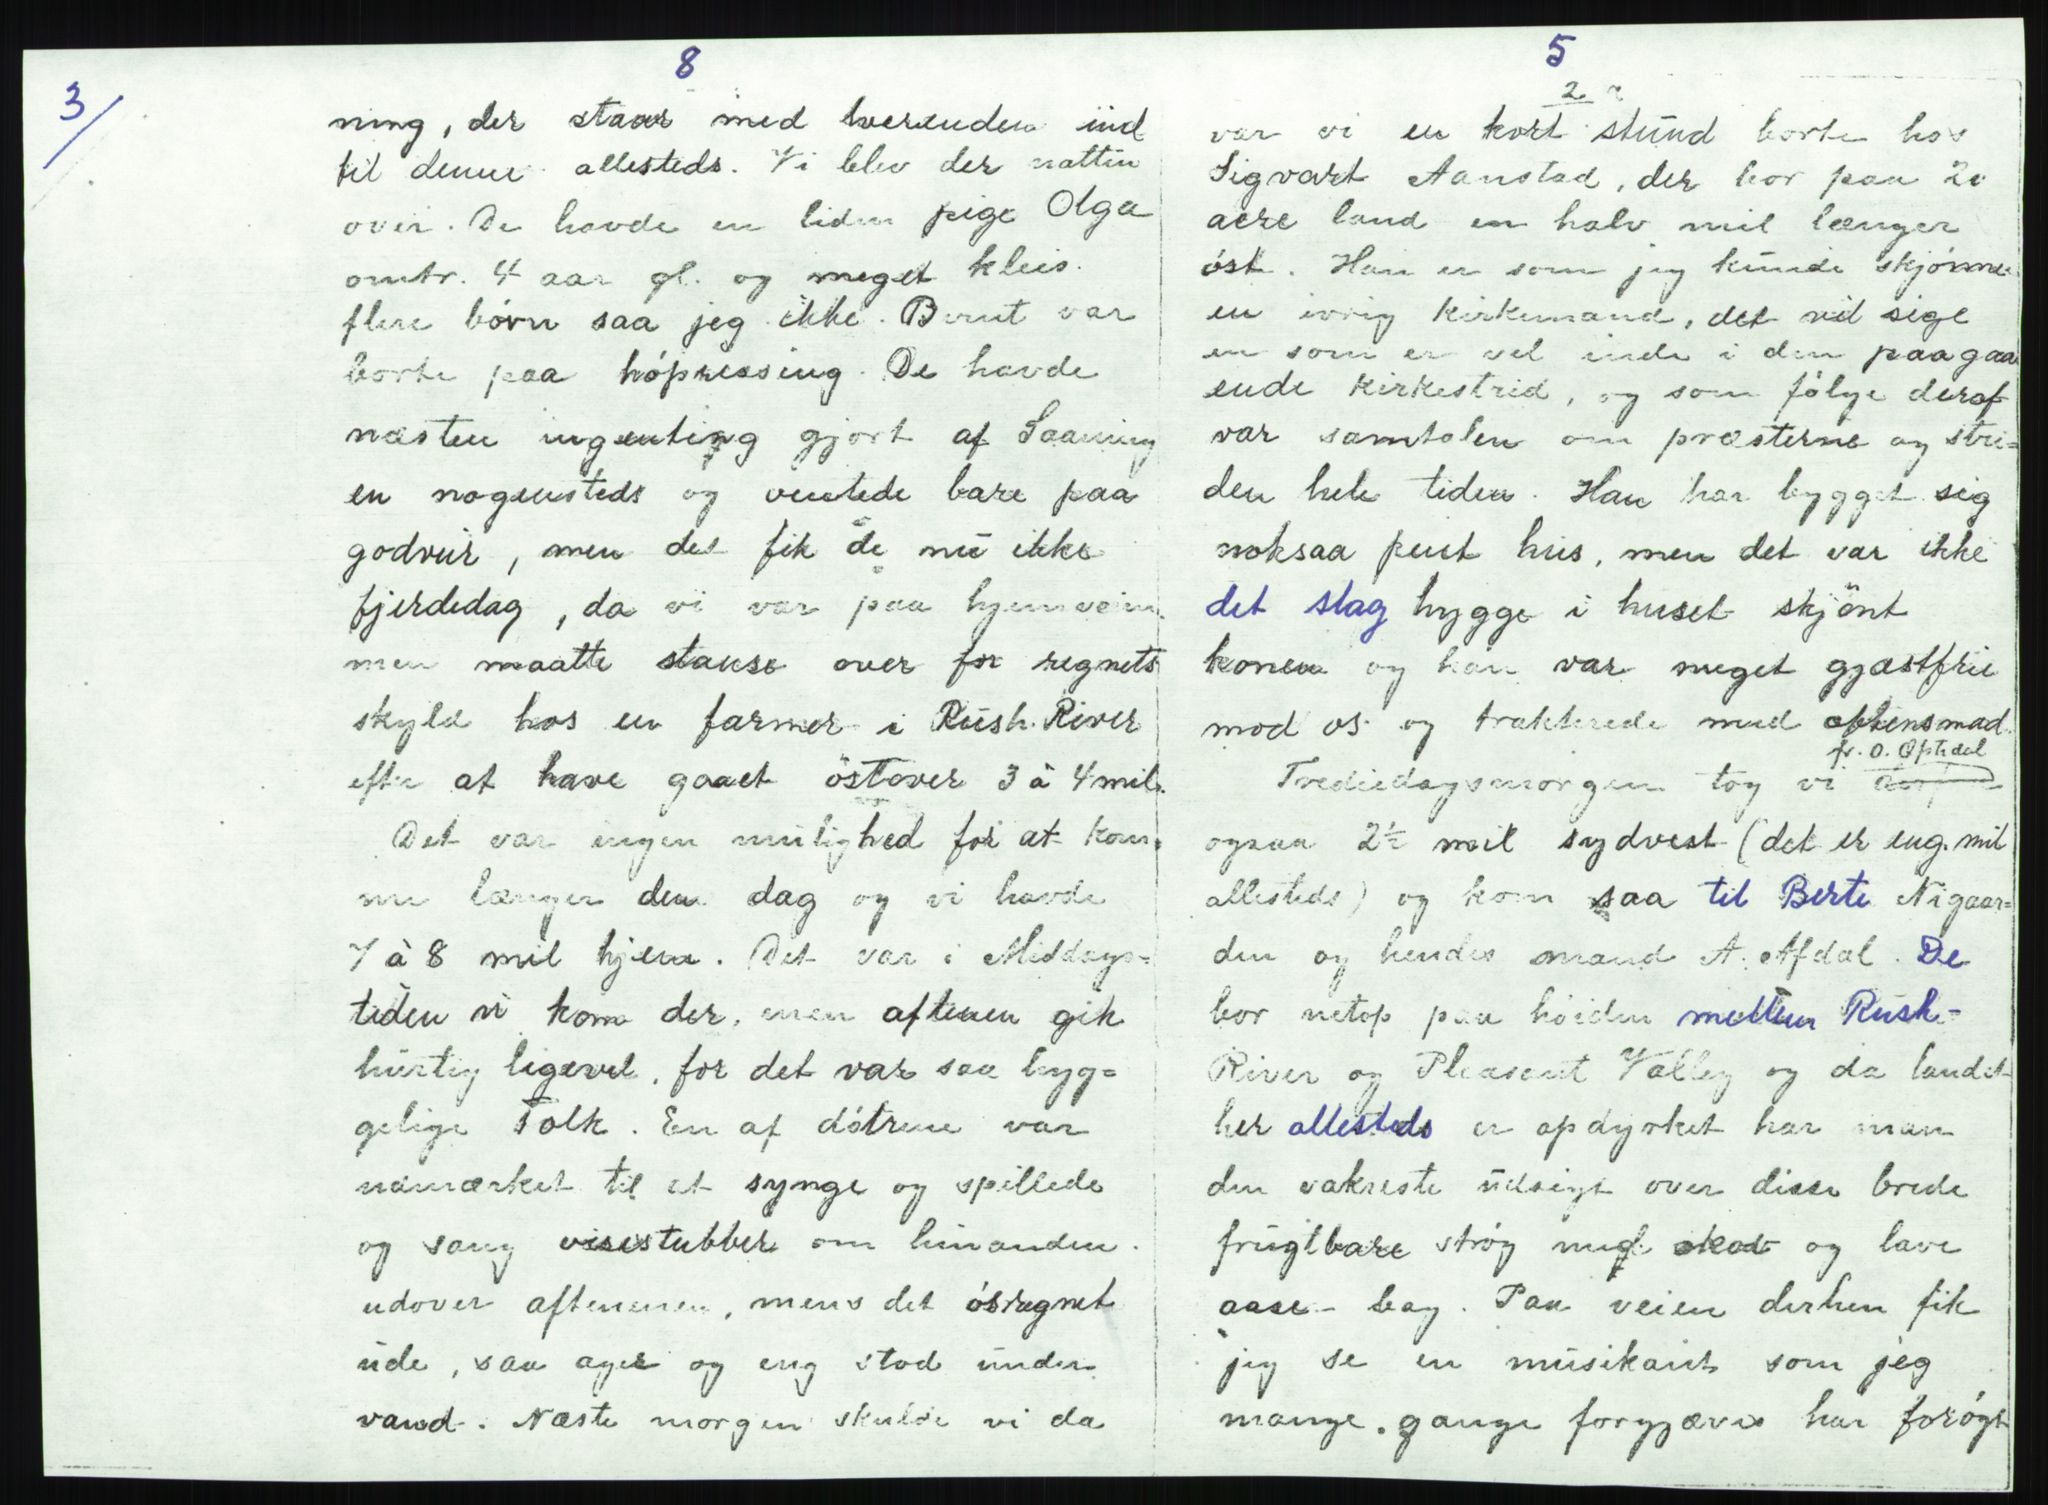 3/
8
ning, der staar med hverenden ind
til denne allesteds. Vi blev der nattin
over. De havde en liden pige Olga
omtr. 4 aar gl. og meget kleis.
flere børn saa jeg ikke. Bernt var
borte paa høpressing. De havde
næsten ingenting gjort af Saaning
en nogensteds og ventede bare paa
godveir, men det fik de nu ikke
fjerdedag, da vi var paa hjemvein.
men maatte stanse over for regnets
skyld hos en farmer i Rush River
efter at have gaaet östover 3 à 4 mil.
Det var ingen mulighed for at kom-
me længer den dag og vi havde
7 à 8 mil hjem. Det var i Middags-
tiden vi kom der, men aftenen gik
hurtig ligevel, for det var saa hyg=
gelige Folk. En af døtrene var
udmærket til at synge og spillede
og sang visestubber om hinanden
udover aftenenen, mens det øsregnet
ude, saa ager og eng stod under
vand. Næste morgen skulde vi da
5
2
var vi en kort stund borte hos
Sigvart Aanstad, der bor paa 20
acre land en halv mil længer
øst. Han er som jeg kunde skjønne
en ivrig kirkemand, det vil sige
en som er vel inde i den paagaa
ende kirkestrid, og som følge deraf
var samtalen om præsterne og stri=
den hele tiden. Han har bygget sig
noksaa pent hus, men det var ikke
det slag hygge i huset skjönt
konen og han var meget gjæstfrie
mod os og trakterede med aftensmad.
fr. O. Optedal
Trediedagsmorgen tog vi
ogsaa 2½ mil sydvest (det er eng. mil
allesteds) og kom saa til Berte Nigaar=
den og hendes mand A. Afdal. De
bor netop paa høiden mellem Rush-
River og Pleasent Valley og da landet
her allesteds er opdyrket har man
den vakreste udsigt over disse brede
frugtbare strøg med skov og lave
aase bag. Paa veien derhen fik
jeg se en musikant som jeg
mange gange forgjæves har forøgt